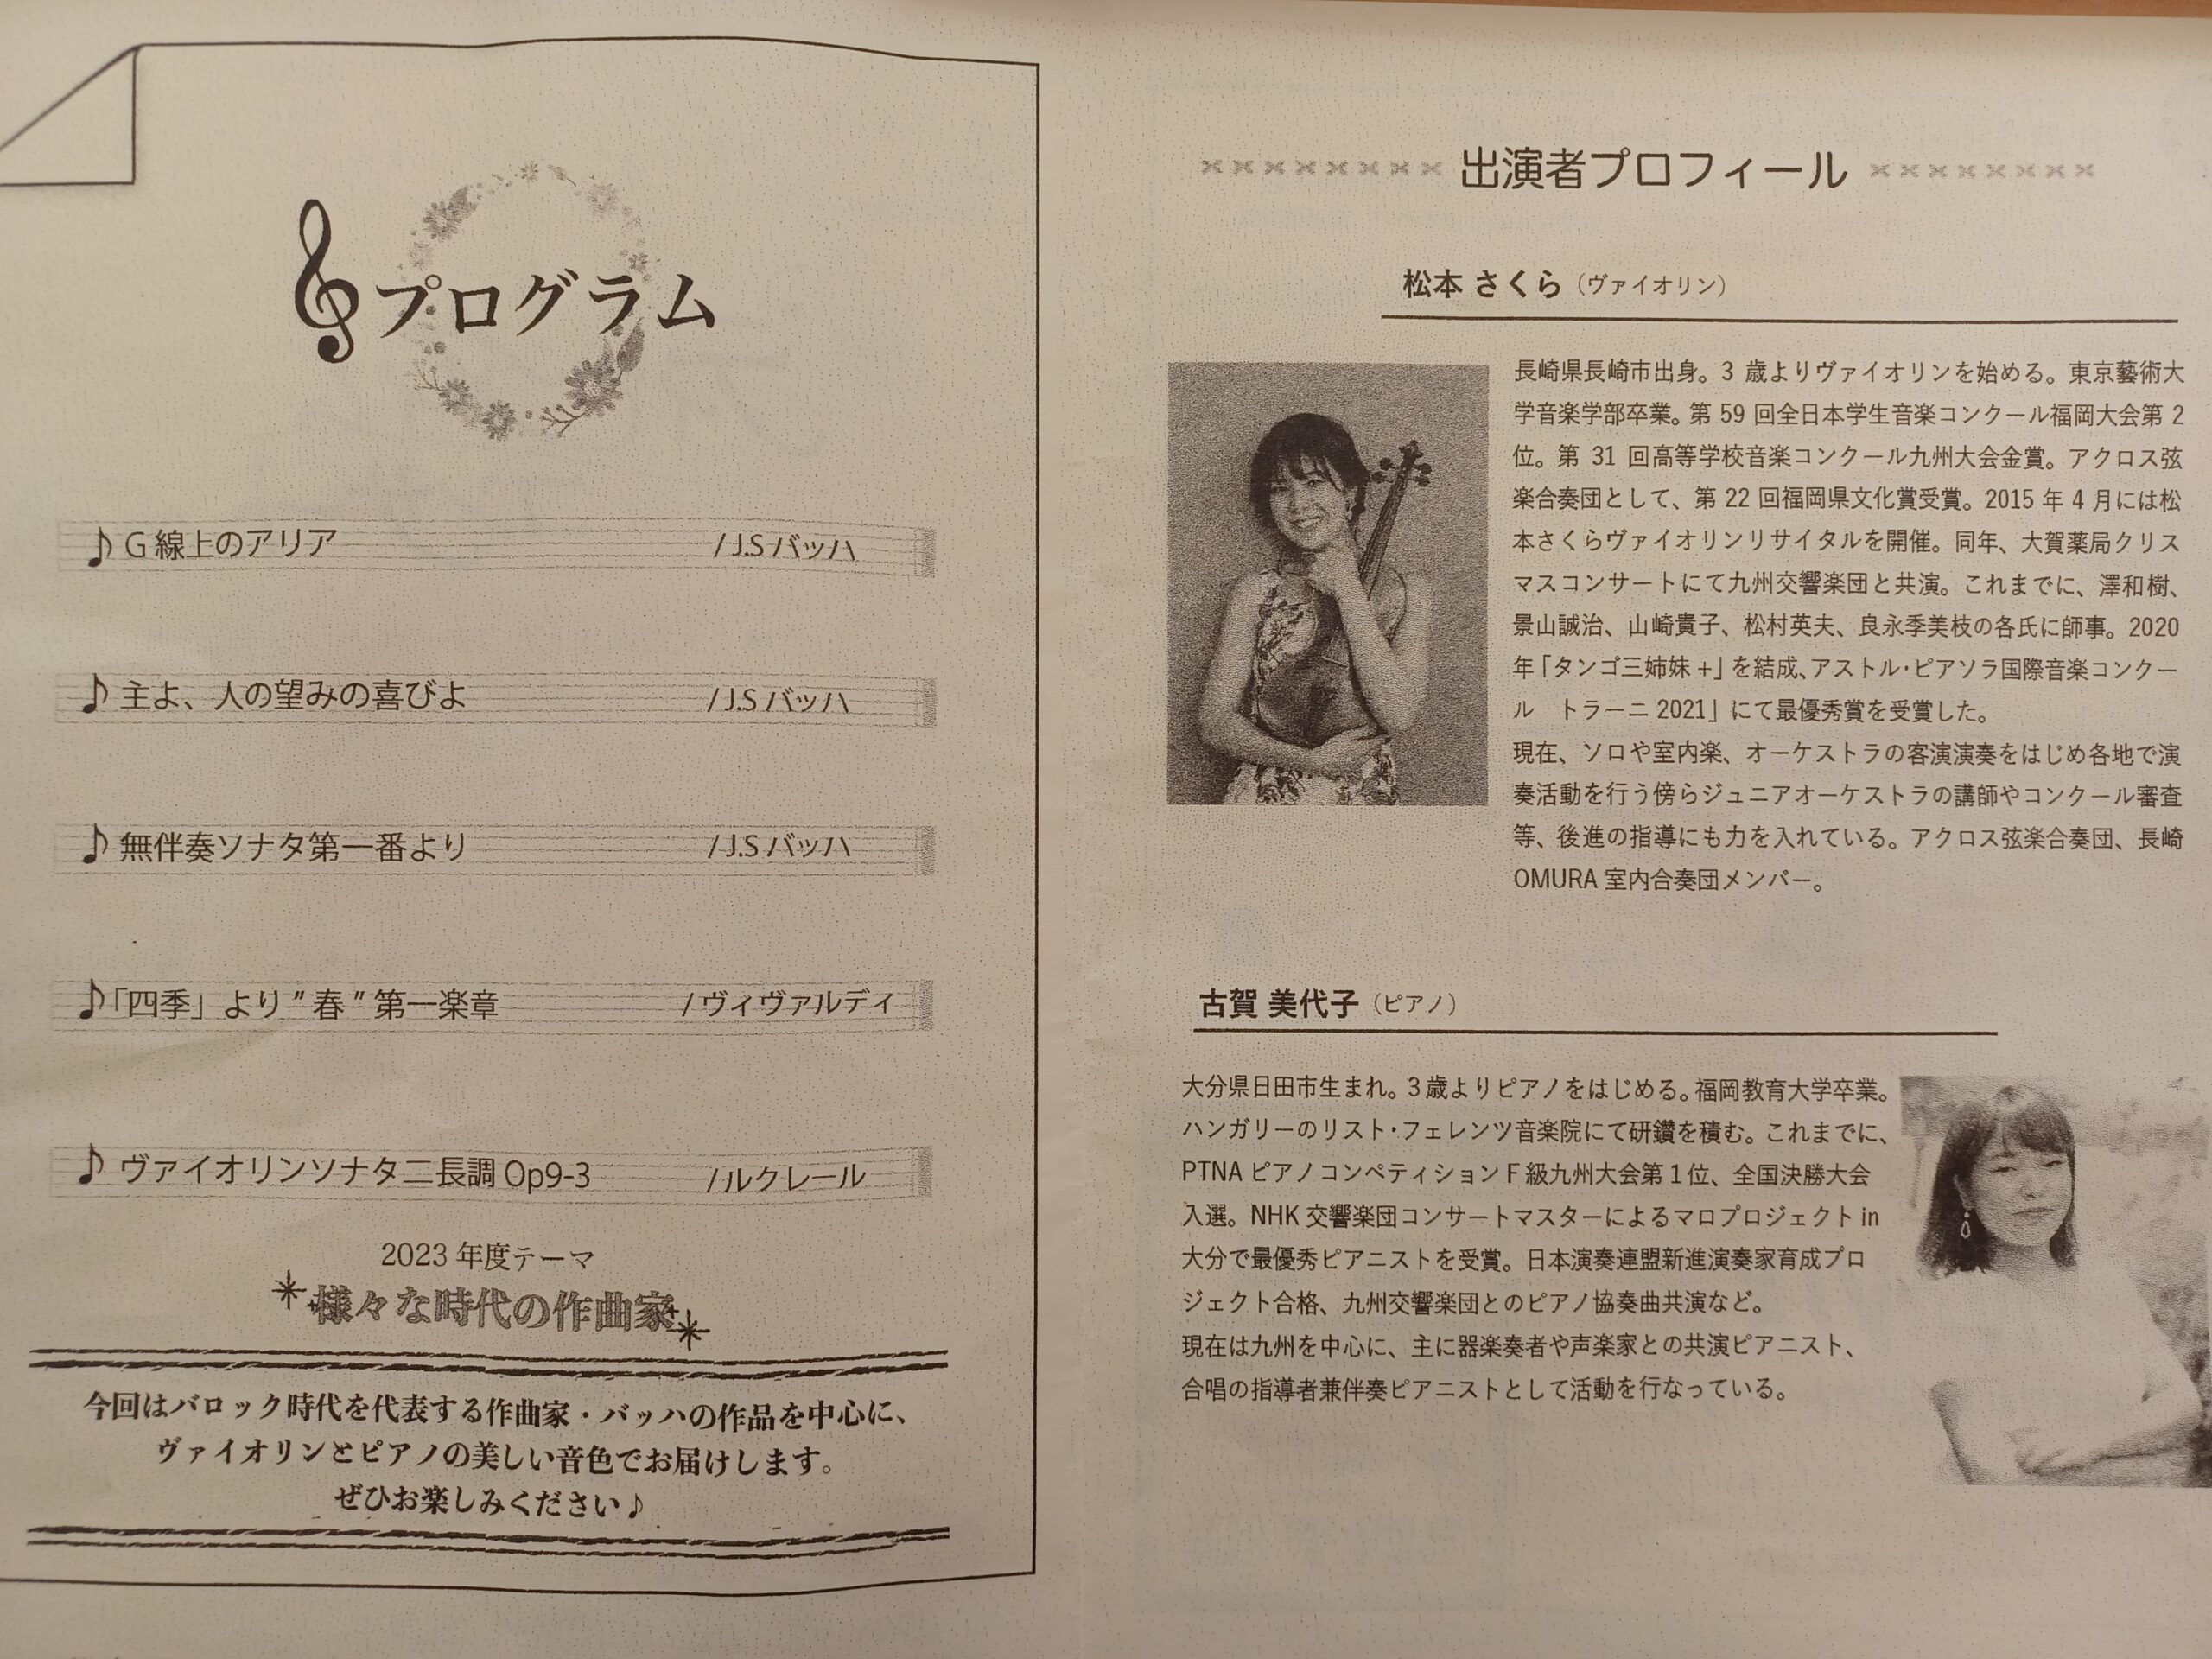 プログラム
♪ G線上のアリア / J.S バッハ
♪ 主よ、人の望みの喜びよ / J.S バッハ
♪ 無伴奏ソナタ第一番より / J.S バッハ
♪「四季」より"春"第一楽章 / ヴィヴァルディ
♪ ヴァイオリンソナタニ長調 Op9-3 / ルクレール
2023 年度テーマ
様々な時代の作曲家
今回はバロック時代を代表する作曲家・バッハの作品を中心に、
ヴァイオリンとピアノの美しい音色でお届けします。
ぜひお楽しみください♪
出演者プロフィール
松本 さくら（ヴァイオリン）
長崎県長崎市出身。3 歳よりヴァイオリンを始める。東京藝術大
学音楽学部卒業。第 59 回全日本学生音楽コンクール福岡大会第 2
位。第 31 回高等学校音楽コンクール九州大会金賞。アクロス弦
楽合奏団として、第 22 回福岡県文化賞受賞。2015 年 4 月には松
本さくらヴァイオリンリサイタルを開催。同年、大賀薬局クリス
マスコンサートにて九州交響楽団と共演。これまでに、澤和樹、
景山誠治、山崎貴子、松村英夫、良永季美枝の各氏に師事。2020
年「タンゴ三姉妹 +」を結成、アストル・ピアソラ国際音楽コンクー
ル　トラーニ 2021」にて最優秀賞を受賞した。
現在、ソロや室内楽、オーケストラの客演演奏をはじめ各地で演
奏活動を行う傍らジュニアオーケストラの講師やコンクール審査
等、後進の指導にも力を入れている。アクロス弦楽合奏団、長崎
OMURA 室内合奏団メンバー。
古賀 美代子（ピアノ）
大分県日田市生まれ。3 歳よりピアノをはじめる。福岡教育大学卒業。
ハンガリーのリスト・フェレンツ音楽院にて研鑽を積む。これまでに、
PTNA ピアノコンペティション F 級九州大会第 1 位、全国決勝大会
入選。NHK 交響楽団コンサートマスターによるマロプロジェクト in
大分で最優秀ピアニストを受賞。日本演奏連盟新進演奏家育成プロ
ジェクト合格、九州交響楽団とのピアノ協奏曲共演など。
現在は九州を中心に、主に器楽奏者や声楽家との共演ピアニスト、
合唱の指導者兼伴奏ピアニストとして活動を行なっている。